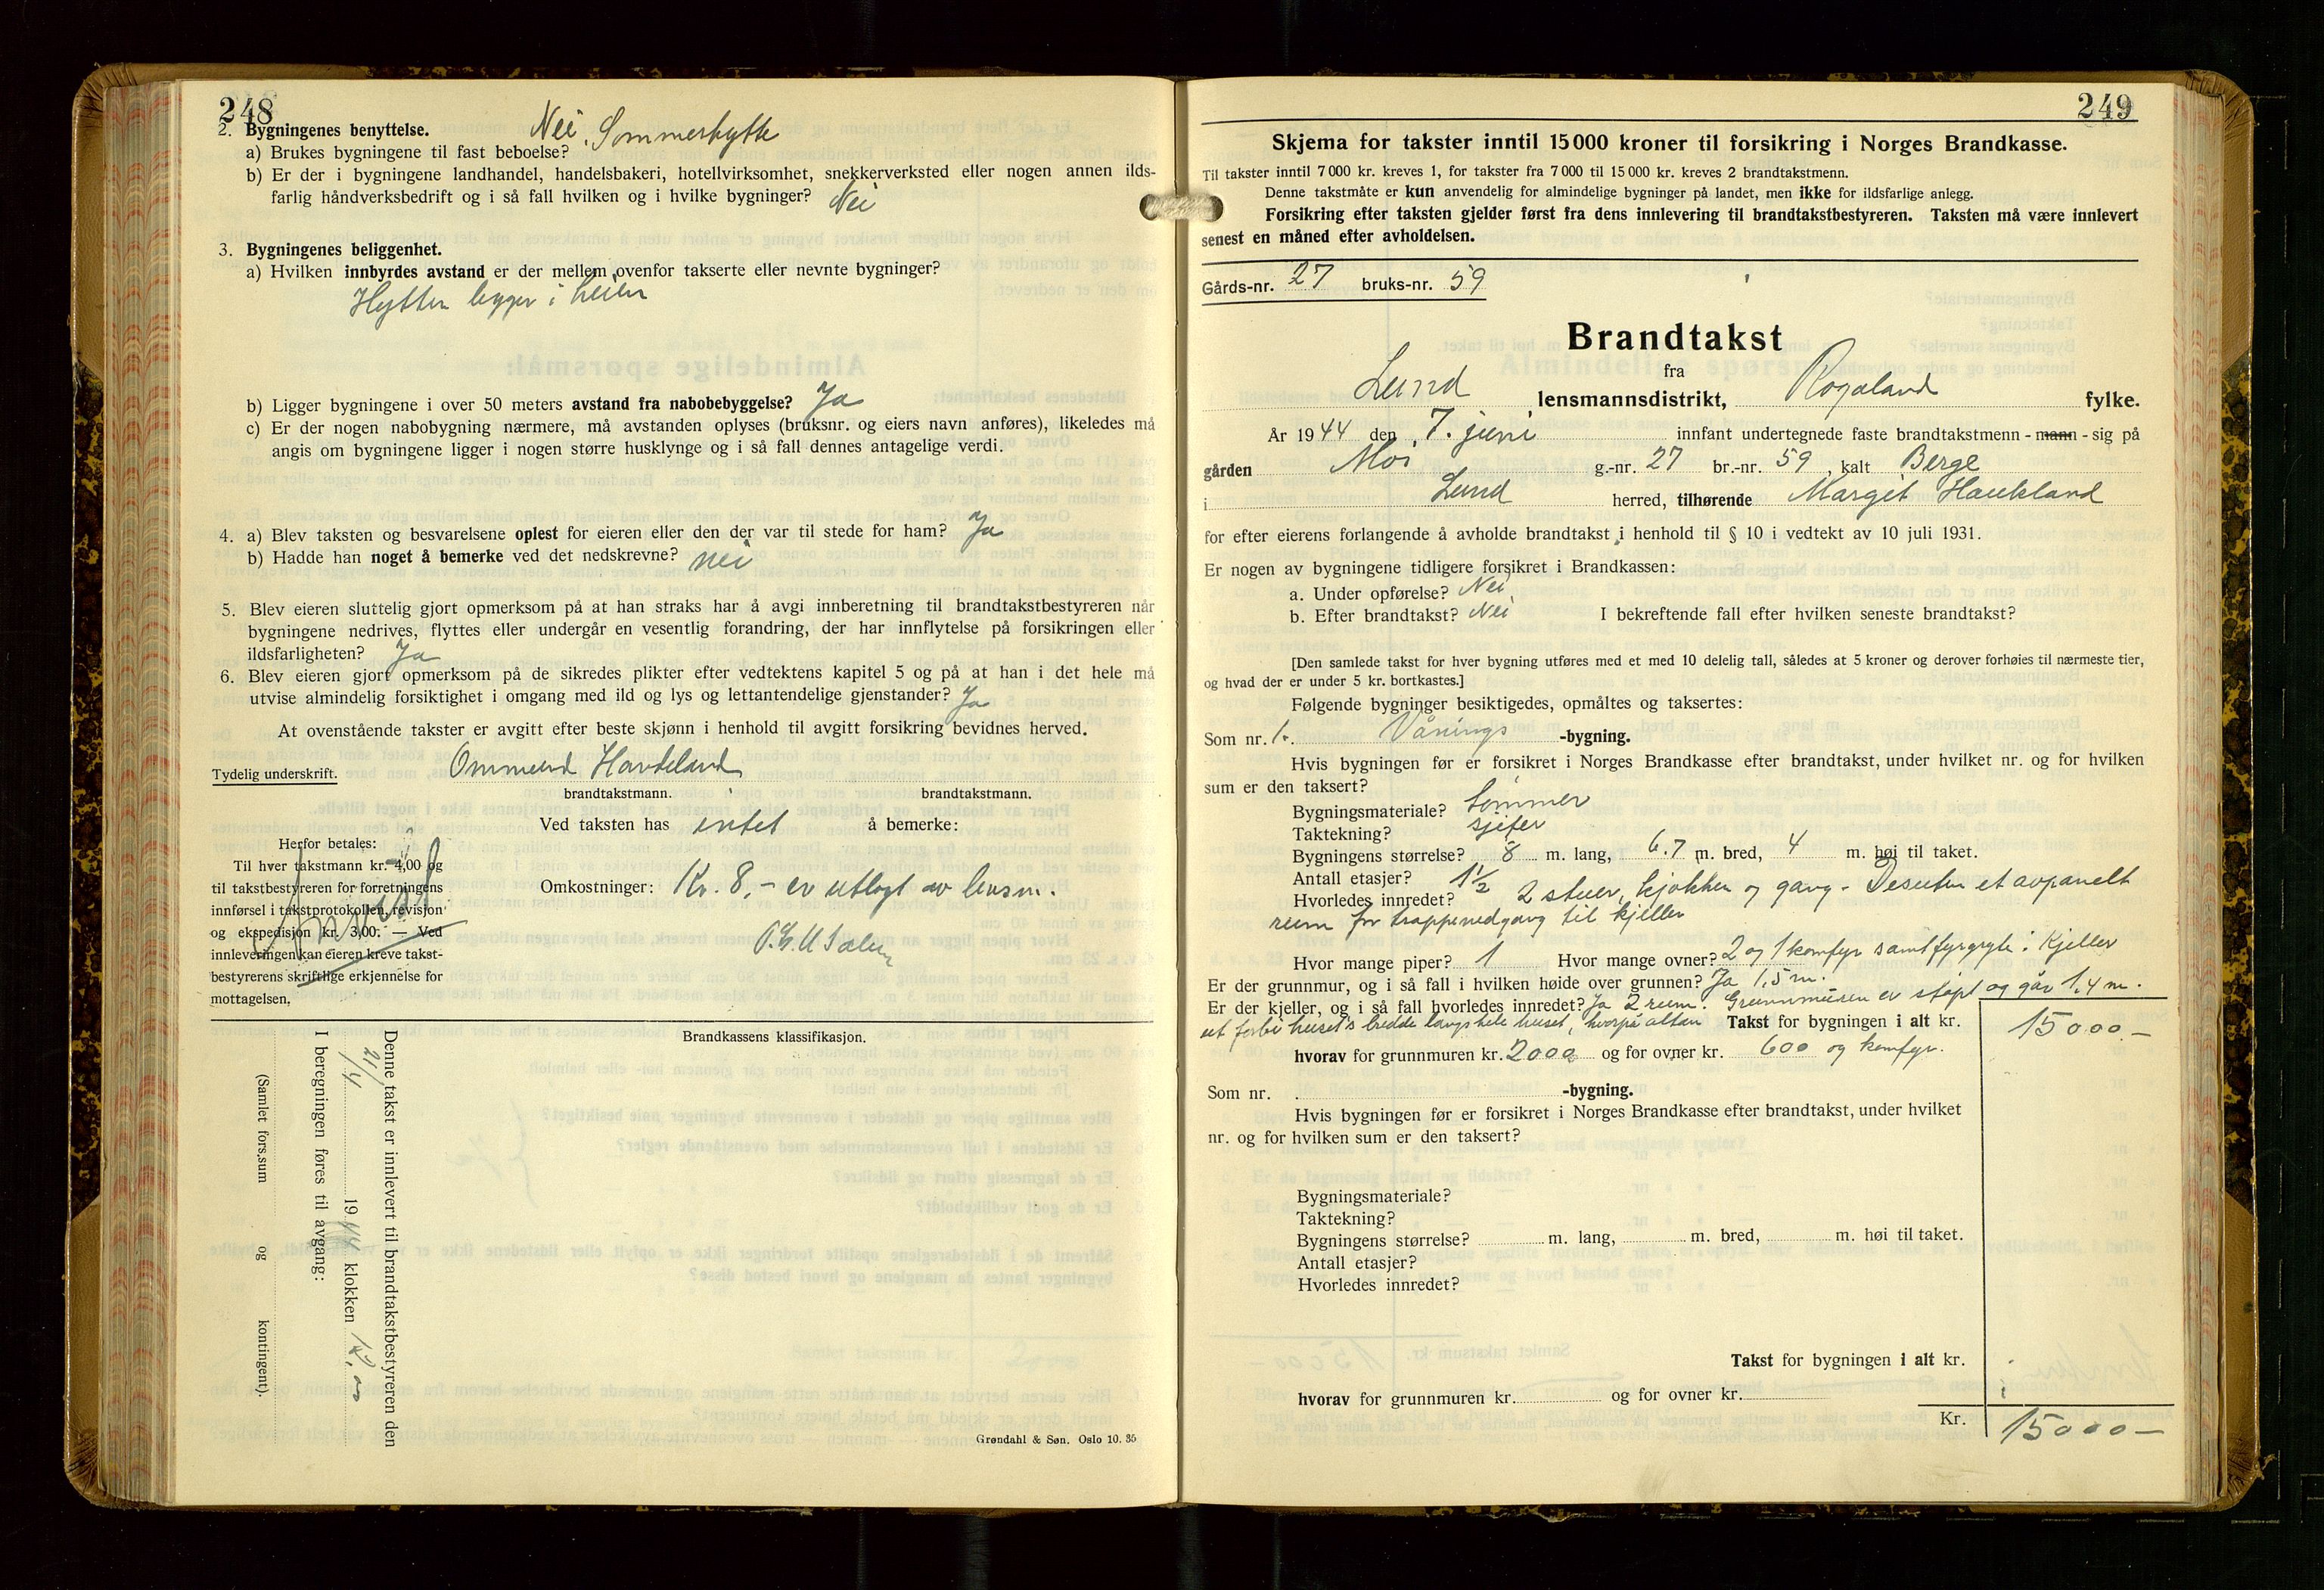 248
2. Bygningenes benyttelse.
a) Brukes bygningene til fast beboelse? Nei. Sommerhytte
b) Er der i bygningene landhandel, handelsbakeri, hotellvirksomhet, snekkerverksted eller nogen annen ilds-
farlig håndverksbedrift og i så fall hvilken og i hvilke bygninger? Nei
3. Bygningenes beliggenhet.
a) Hvilken innbyrdes avstand er der mellem ovenfor takserte eller nevnte bygninger?
Hytten ligger i heien
b) Ligger bygningene i over 50 meters avstand fra nabobebyggelse? Ja
c) Er der nogen nabobygning nærmere, må avstanden oplyses (bruksnr. og eiers navn anføres), likeledes må
angis om bygningene ligger i nogen større husklynge og i så fall dennes antagelige verdi.
4. a) Blev taksten og besvarelsene oplest for eieren eller den der var til stede for ham? Ja
b) Hadde han noget å bemerke ved det nedskrevne? nei
5. Blev eieren sluttelig gjort opmerksom på at han straks har å avgi innberetning til brandtakstbestyreren når
bygningene nedrives, flyttes eller undergår en vesentlig forandring, der har innflytelse på forsikringen eller
ildsfarligheten? Ja
6. Blev eieren gjort opmerksom på de sikredes plikter efter vedtektens kapitel 5 og på at han i det hele må
utvise almindelig forsiktighet i omgang med ild og lys og lettantendelige gjenstander? Ja
At ovenstående takster er avgitt efter beste skjønn i henhold til avgitt forsikring bevidnes herved.
Tydelig underskrift. Ommund Haudeland
brandtakstmann. brandtakstmann.
Ved taksten has intet å bemerke:
Herfor betales:
Til hver takstmann kr. 4,00 og
til takstbestyreren for forretningens
innførsel i takstprotokollen, revisjon
og ekspedisjon kr. 3,00. — Ved
innleveringen kan eieren kreve takst-
bestyrerens skriftlige erkjennelse for
mottagelsen.
Omkostninger: Kr. 8,- er utlagt av lensm.
Brandkassens klassifikasjon.
Denne takst er innlevert til brandtakstbestyreren den
21/4 1944 klokken
I beregningen føres til avgang:
(Samlet fors.sum og kontingent).
Grøndahl & Søn. Oslo 10. 35
249
Skjema for takster inntil 15 000 kroner til forsikring i Norges Brandkasse.
Til takster inntil 7 000 kr. kreves 1, for takster fra 7 000 til 15 000 kr. kreves 2 brandtakstmenn.
Denne takstmåte er kun anvendelig for almindelige bygninger på landet, men ikke for ildsfarlige anlegg.
Forsikring efter taksten gjelder først fra dens innlevering til brandtakstbestyreren. Taksten må være innlevert
senest en måned efter avholdelsen.
Gårds-nr. 27 bruks-nr. 59
Brandtakst
fra
Lund lensmannsdistrikt, Rogaland fylke.
År 1944 den 7. juni innfant undertegnede faste brandtakstmenn - mann - sig på
gården Moi g.-nr. 27 br.-nr. 59, kalt Berge
i Lund herred, tilhørende Margit Haukland
for efter eierens forlangende å avholde brandtakst i henhold til § 10 i vedtekt av 10 juli 1931.
Er nogen av bygningene tidligere forsikret i Brandkassen:
a. Under opførelse? Nei
b. Efter brandtakst? Nei I bekreftende fall efter hvilken seneste brandtakst?
[Den samlede takst for hver bygning utføres med et med 10 delelig tall, således at 5 kroner og derover forhøies til nærmeste tier,
og hvad der er under 5 kr. bortkastes.]
Følgende bygninger besiktigedes, opmåltes og taksertes:
Som nr. 1. Vånings -bygning.
Hvis bygningen før er forsikret i Norges Brandkasse efter brandtakst, under hvilket nr. og for hvilken
sum er den taksert?
Bygningsmateriale? tømmer
Taktekning? sjifer
Bygningens størrelse? 8 m. lang, 6.7 m. bred, 4 m. høi til taket.
Antall etasjer? 1½
Hvorledes innredet? 2 stuer, kjøkken og gang - Desuten et avpanelt
rum for trappenedgang til kjeller
Hvor mange piper? 1 Hvor mange ovner? 2 og 1 komfyr samt fyrgryte i kjeller
Er der grunnmur, og i så fall i hvilken høide over grunnen? Ja 1,5 m.
Er der kjeller, og i så fall hvorledes innredet? Ja 2 rum. Grunnmuren er støpt og går 1.4 m.
ut forbi husets bredde langs hele huset, hvorpå altan Takst for bygningen i alt kr. 15000-
hvorav for grunnmuren kr. 2000 og for ovner kr. 600 og komfyr.
Som nr. -bygning.
Hvis bygningen før er forsikret i Norges Brandkasse efter brandtakst, under hvilket
nr. og for hvilken sum er den taksert?
Bygningsmateriale?
Taktekning?
Bygningens størrelse? m. lang, m. bred, m. høi til taket.
Antall etasjer?
Hvorledes innredet?
Takst for bygningen i alt kr.
hvorav for grunnmuren kr. og for ovner kr.
Kr. 15000-